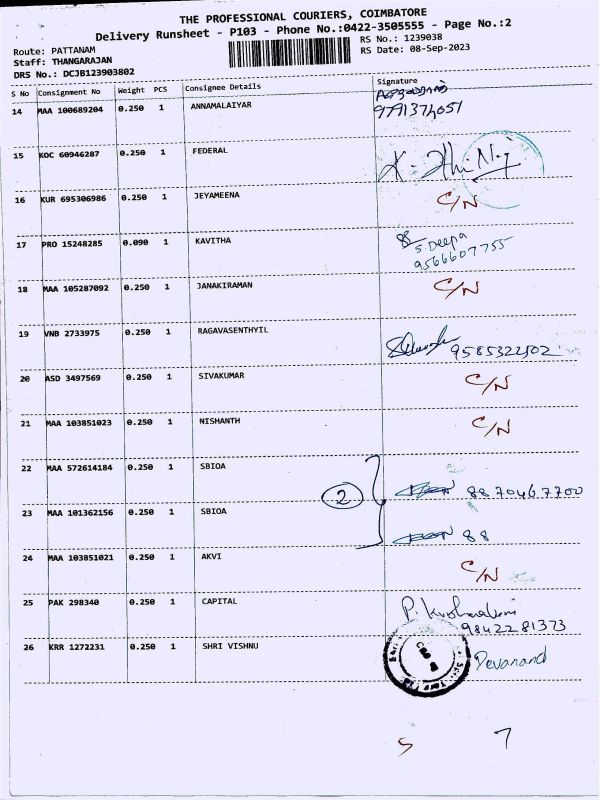 THE PROFESSIONAL COURIERS, COIMBATORE
Delivery Runsheet - P103 - Phone No.:0422-3505555 - Page No.:2
Route: PATTANAM
RS No.: 1239038
Staff: THANGARAJAN
RS Date: 08-Sep-2023
DRS No.: DCJB123903802
S No Consignment No Weight PCS Consignee Details Signature
14 MAA 100689204 0.250 1 ANNAMALAIYAR
9791374051
15 KOC 60946287 0.250 1 FEDERAL
16 KUR 695306986 0.250 1 JEYAMEENA C/N
17 PRO 15248285 0.090 1 KAVITHA S. Deepa
9566607755
18 MAA 105287092 0.250 1 JANAKIRAMAN C/N
19 VNB 2733975 0.250 1 RAGAVASENTHYIL 9585322502
20 ASD 3497569 0.250 1 SIVAKUMAR C/N
21 MAA 103851023 0.250 1 NISHANTH C/N
22 MAA 572614184 0.250 1 SBIOA 8870467700
2
23 MAA 101362156 0.250 1 SBIOA 88
24 MAA 103851021 0.250 1 AKVI C/N
25 PAK 298340 0.250 1 CAPITAL
9842281373
26 KRR 1272231 0.250 1 SHRI VISHNU Devanand
7